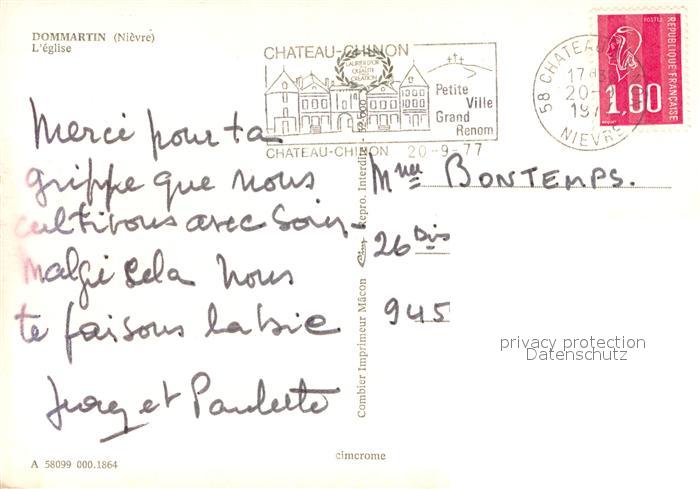 DOMMARTIN (Nièvre)
L'église
CHATEAU-CHINON
LAURIER D'OR
QUALITÉ
CRÉATION
Petite
Ville
Grand
Renom
CHATEAU-CHINON 20-9-77
58 CHATEAU
17H3
20-
197
NIEVRE
POSTES
REPUBLIQUE FRANÇAISE
1,00
Merci pour ta
grippe que nous
cultivons avec soin
malgré cela nous
te faisons la bise
et Paulette
Mmes BONTEMPS.
26 Bis
945
Combier Imprimeur Mâcon Cim Repro. Interdite
privacy protection
Datenschutz
A 58099 000.1864
cimcrome